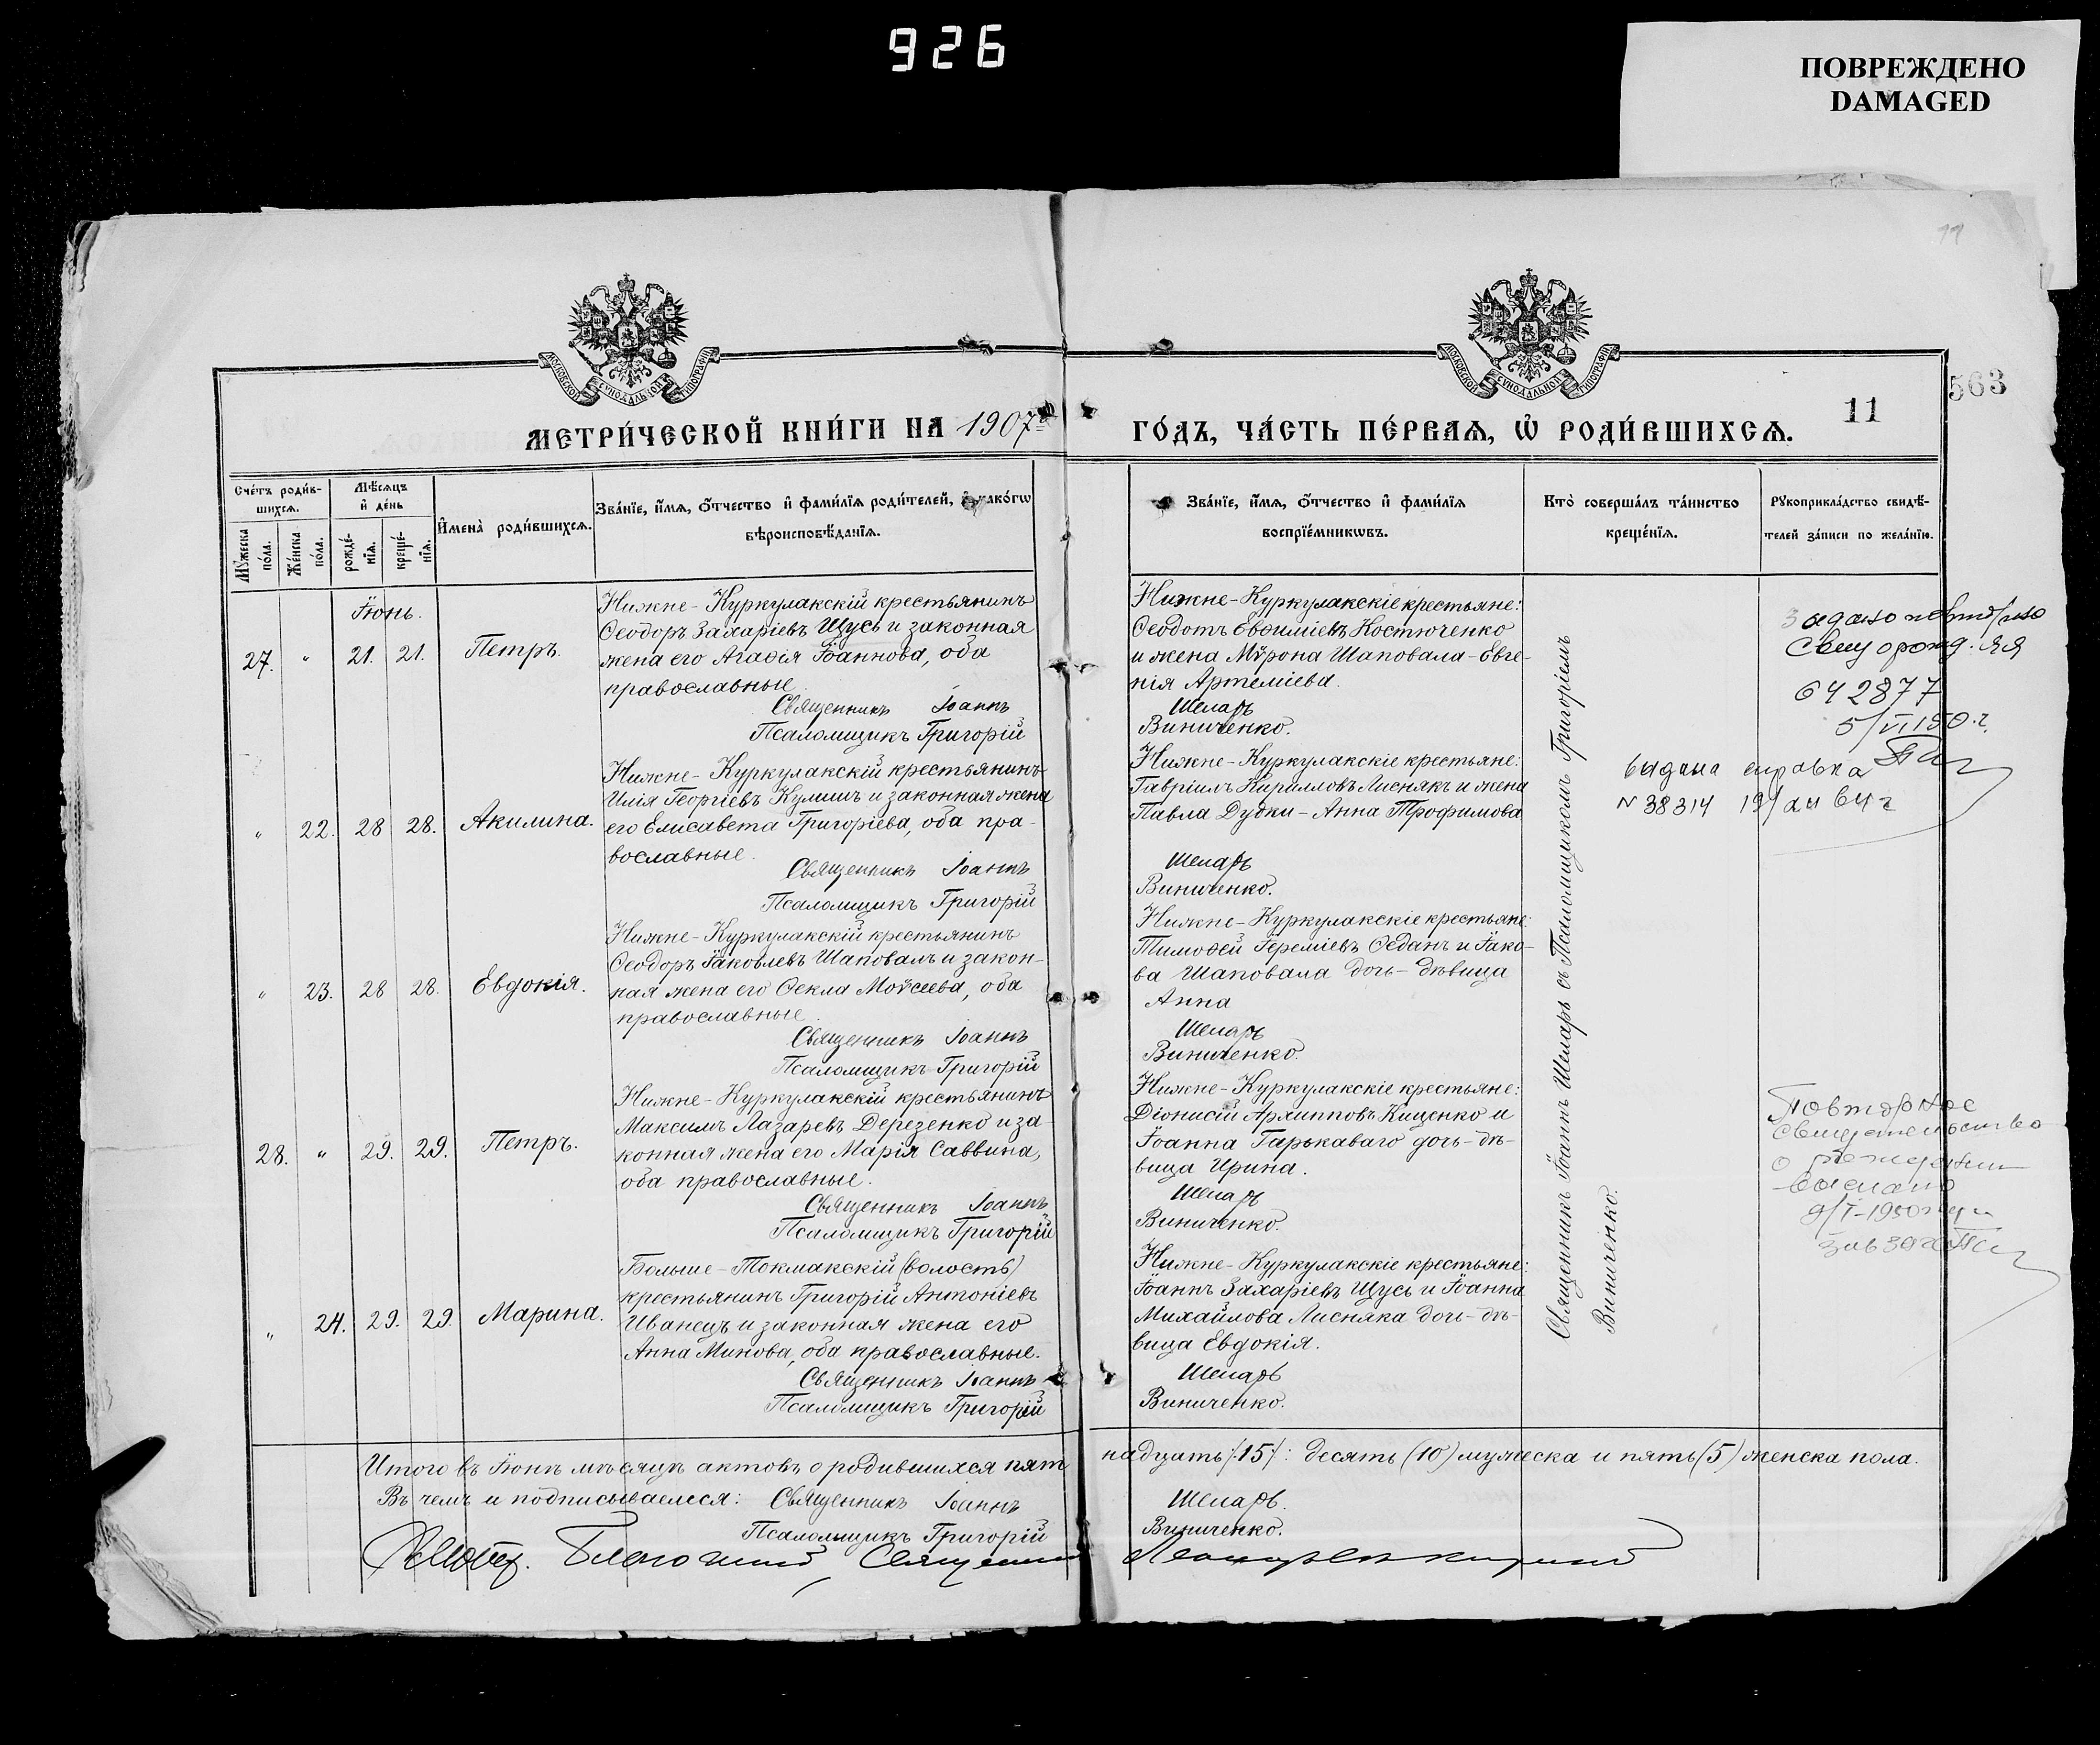 926
ПОВРЕЖДЕНО
DAMAGED
563
11
МОСКОВСКОЙ СѴНОДАЛЬНОЙ ТИПОГРАФІИ
МОСКОВСКОЙ СѴНОДАЛЬНОЙ ТИПОГРАФІИ
МЕТРИ́ЧЕСКОЙ КНИ́ГИ НА 1907й ГО́ДЪ, ЧА́СТЬ ПЕ́РВАѦ, Ѡ҆ РОДИ́ВШИХСѦ.
Сче́тъ роди́в-
шихсѧ.
Мꙋжеска по́ла.
Же́нска по́ла.
Мѣ́сѧцъ
и҆ де́нь
рожде́-
нїѧ.
креще́-
нїѧ.
И҆мена̀ роди́вшихсѧ.
Зва́нїе, и҆́мѧ, ѻ҆́тчество и҆ фами́лїѧ роди́телей, и҆ како́гѡ
вѣроисповѣ́данїѧ.
Зва́нїе, и҆́мѧ, ѻ҆́тчество и҆ фами́лїѧ
воспрїе́мникѡвъ.
Кто̀ соверша́лъ та́инство
креще́нїѧ.
Рꙋкоприкла́дство свидѣ́-
телей за́писи по жела́нїю.
Іюнь.
27. " 21. 21. Петръ.
Нижне-Куркулакскій крестьянинъ
Ѳеодоръ Захаріевъ Щусь и законная
жена его Агаѳія Іоаннова, оба
православные.
Священникъ Іоаннъ
Псаломщикъ Григорій
Нижне-Куркулакскіе крестьяне:
Ѳеодотъ Евѳиміевъ Костюченко
и жена Мѵрона Шаповала-Евге-
нія Артеміева.
Шемарь
Виниченко.
642877
" 22. 28 28. Акилина.
Нижне-Куркулакскій крестьянинъ
Илія Георгіевъ Кулишъ и законная жена
его Елисавета Григоріева, оба пра-
вославные.
Священникъ Іоаннъ
Псаломщикъ Григорій
Нижне-Куркулакскіе крестьяне:
Гавріилъ Кирилловъ Лиснякъ и жена
Павла Дудки-Анна Трофимова
Шемарь
Виниченко.
выдана справка
N 38314
" 23. 28 28. Евдокія.
Нижне-Куркулакскій крестьянинъ
Ѳеодоръ Іаковлевъ Шаповалъ и закон-
ная жена его Ѳекла Моѵсеева, оба
православные.
Священникъ Іоаннъ
Псаломщикъ Григорій
Нижне-Куркулакскіе крестьяне:
Тимоѳей Іереміевъ Ѳеданъ и Іако-
ва Шаповала дочь-дѣвица
Анна
Шемарь
Виниченко.
28. " 29. 29. Петръ.
Нижне-Куркулакскій крестьянинъ
Максимъ Лазаревъ Дерезенко и за-
конная жена его Марія Саввина,
оба православные.
Священникъ Іоаннъ
Псаломщикъ Григорій
Нижне-Куркулакскіе крестьяне:
Діонисій Архипповъ Кищенко и
Іоанна Гарькаваго дочь-дѣ-
вица Ирина.
Шемарь
Виниченко.
Повторное
свидетельство
о рождении
выслано
" 24. 29. 29. Марина.
Больше-Токмакскій (волость)
крестьянинъ Григорій Антоніевъ
Иванецъ и законная жена его
Анна Минова, оба православные.
Священникъ Іоаннъ
Псаломщикъ Григорій
Нижне-Куркулакскіе крестьяне:
Іоаннъ Захаріевъ Щусь и Іоанна
Михайлова Лисняка дочь-дѣ-
вица Евдокія.
Шемарь
Виниченко.
Священникъ Іоаннъ Шемарь съ Псаломщикомъ Григоріемъ
Виниченко.
Итого въ Іюнѣ мѣсяцѣ актовъ о родившихся пят надцать /:15:/: десять (10) мужеска и пять (5) женска пола.
Въ чемъ и подписываемся: Священникъ Іоаннъ Шемарь.
Псаломщикъ Григорій Виниченко.
Благочинный, Священникъ